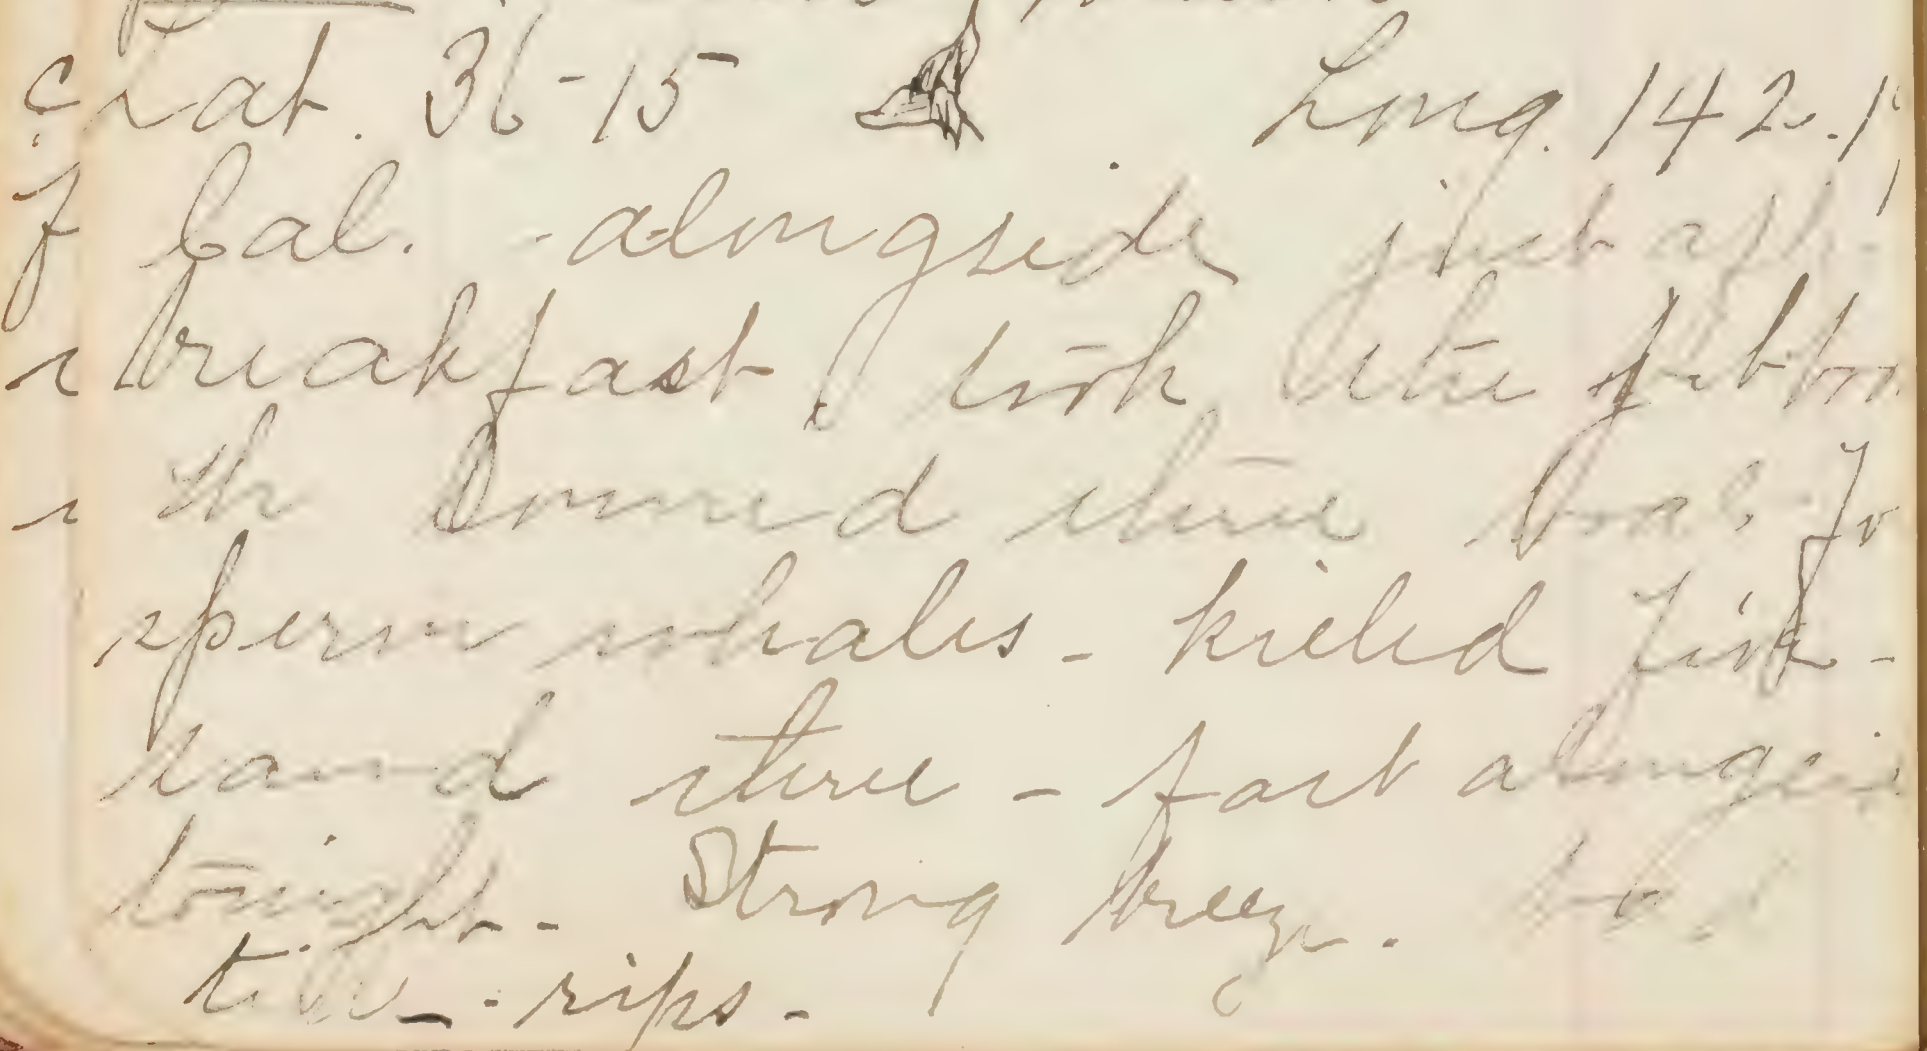 Lat. 36-15 Long. 142.1
Cal. - alongside just aft
breakfast, took the jibboom
lowered three boats for
sperm whales - killed fish -
and three - fast alongside
tonight - Strong breeze. bad
tide - rips -